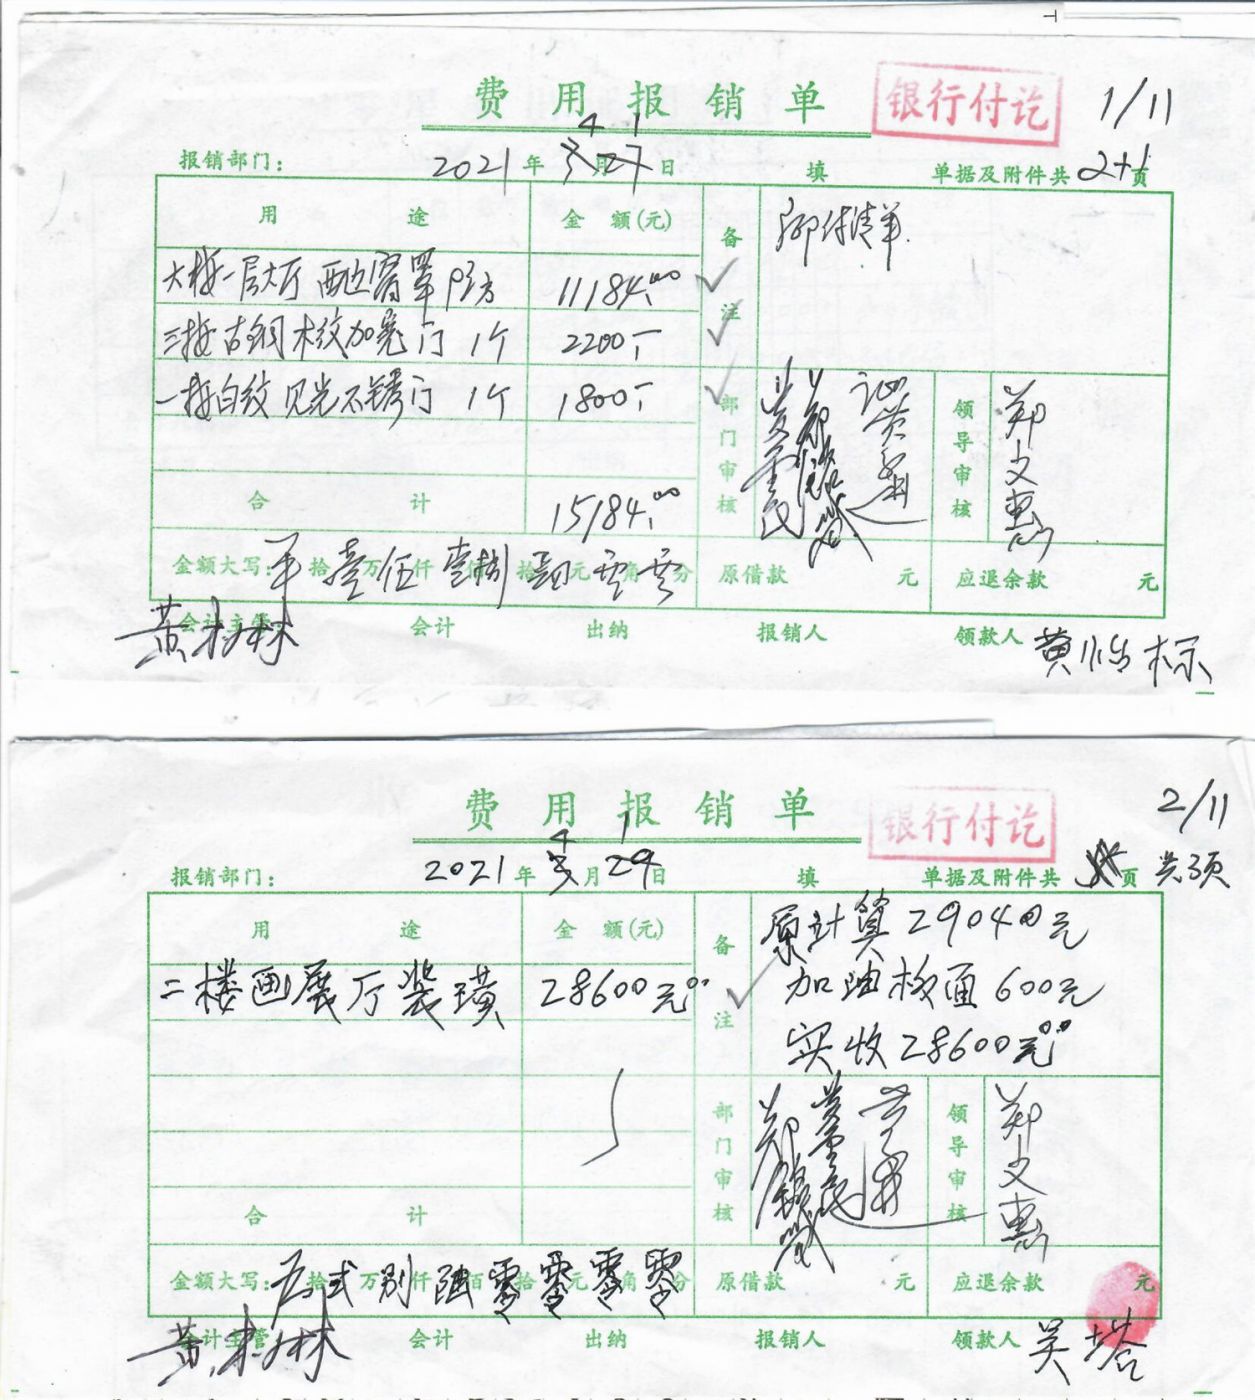 费用报销单
银行付讫
1/11
报销部门：
2021年 4月 1日
填
单据及附件共 2+1 页
用途 金额(元) 备注
大楼一层大厅
11184.00
三楼古铜木纹加宽门 1个 2200.-
一楼白纹见光不锈门 1个 1800.-
部门审核
领导审核 郑文惠
合计 15184.00
金额大写： 拾 壹万 伍仟 壹佰 捌拾 元 角 分
原借款 元
应退余款 元
会计主管： 黄 林
会计
出纳
报销人
领款人 黄怡标
费用报销单
银行付讫
2/11
报销部门：
2021年 4月 1日
填
单据及附件共 页 共3页
用途 金额(元) 备注
原计算29040元
二楼画展厅装璜 28600元00
加油板面600元
实收28600元00
部门审核
领导审核 郑文惠
合计
金额大写： 拾 贰万 捌仟 陆佰 零拾 零元 零角 零分
原借款 元
应退余款 元
会计主管： 黄 林
会计
出纳
报销人
领款人 吴塔